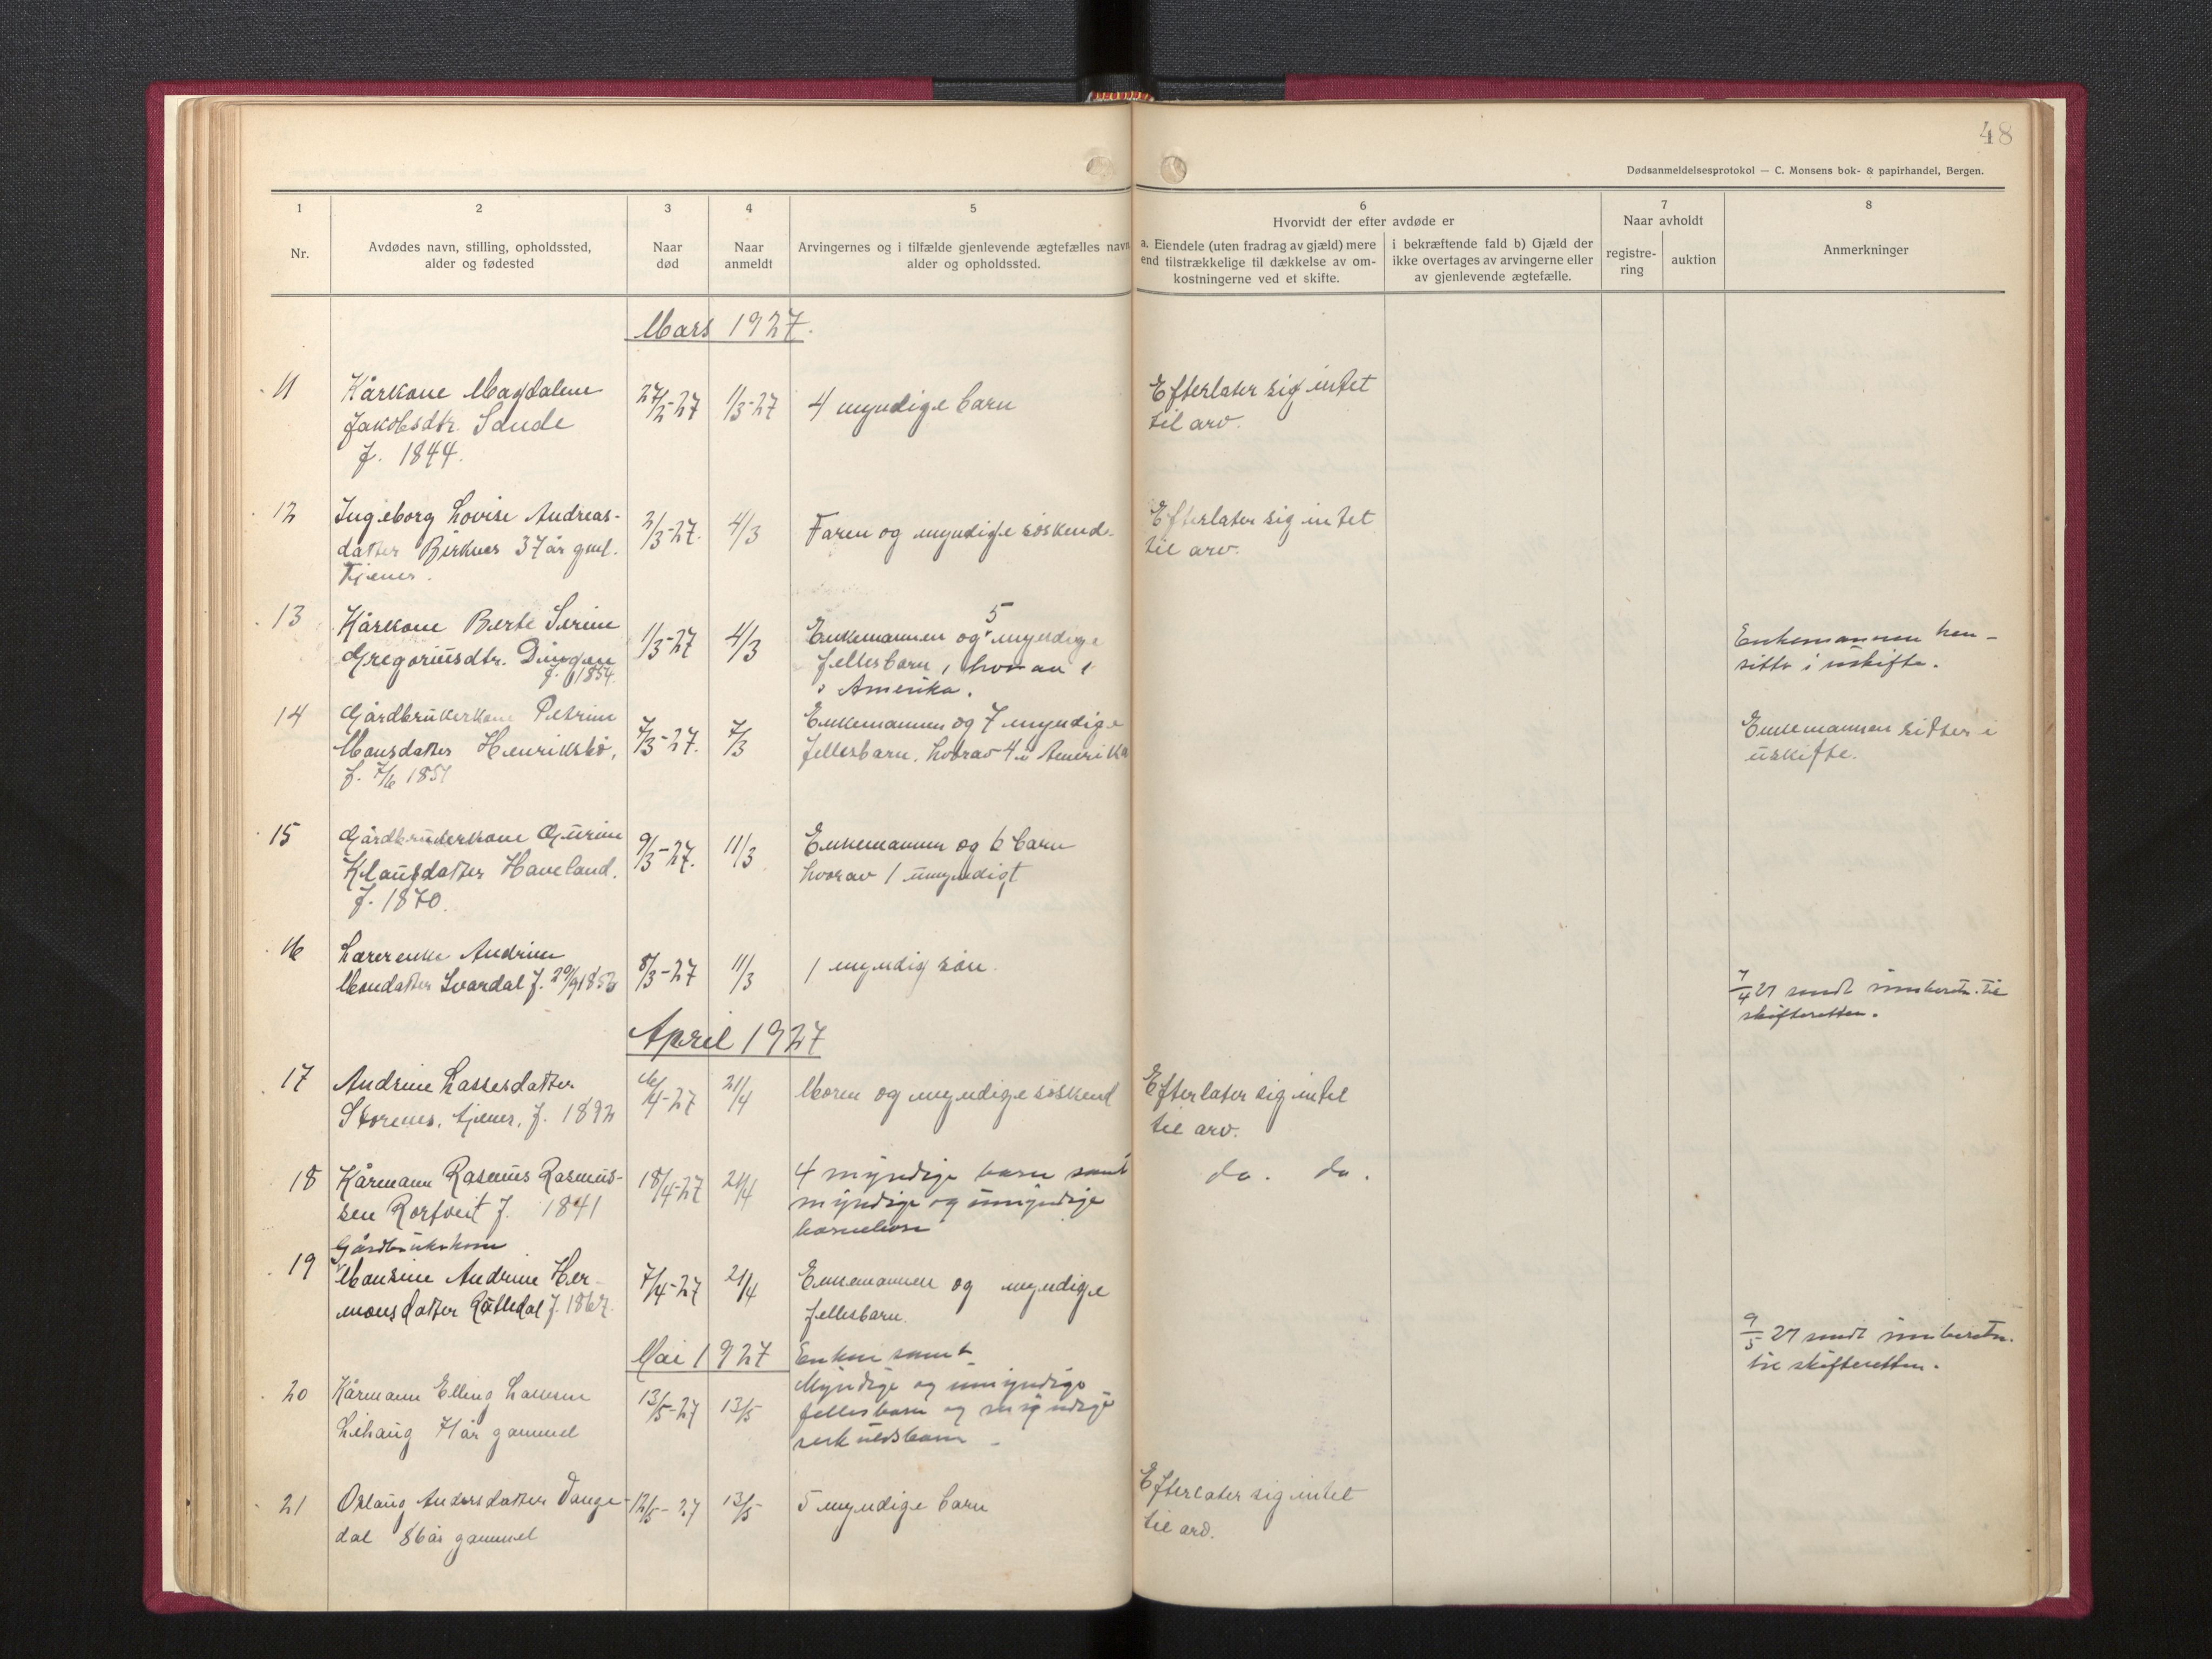 48
Dødsanmeldelsesprotokol — C. Monsens bok- & papirhandel, Bergen.
1
Nr.
2
Avdødes navn, stilling, opholdssted,
alder og fødested
3
Naar
død
4
Naar
anmeldt
5
Arvingernes og i tilfælde gjenlevende ægtefælles navn,
alder og opholdssted.
6
Hvorvidt der efter avdøde er
a. Eiendele (uten fradrag av gjæld) mere
end tilstrækkelige til dækkelse av om-
kostningerne ved et skifte.
i bekræftende fald b) Gjæld der
ikke overtages av arvingerne eller
av gjenlevende ægtefælle.
7
Naar avholdt
registre-
ring
auktion
8
Anmerkninger
Mars 1927.
11
Kårkone Magdalene
Jakobsdtr. Sande
f. 1844.
27/2-27
1/3-27
4 myndige barn
Efterlater sig intet
til arv.
12
Ingeborg Lovise Andreas-
datter Birknes 37 år gml.
Tjener.
2/3-27.
4/3
Faren og myndige søskend
Efterlater sig intet
til arv.
13
Kårkone Berte Serine
Gregoriusdtr. Dingen
f. 1854.
1/3-27
4/3
5
Enkemannen og myndige
fellesbarn, hvorav 1
i Amerika.
Enkemannen hen-
sitter i uskifte.
14
Gårdbrukerkone Petrine
Monsdatter Henriksbø,
f. 7/6 1851
7/3-27.
7/3
Enkemannen og 7 myndige
fellesbarn. hvorav 4 i Amerika
Enkemannen sitter i
uskifte.
15
Gårdbrukerkone Gurine
Klausdatter Haveland.
f. 1870.
9/3-27.
11/3
Enkemannen og 6 barn
hvorav 1 umyndigt
16
Lærerenke Andrine
Monsdatter Svardal f.
8/3-27
11/3
1 myndig søn.
7/4 27 sendt innberetn. til
skifteretten.
April 1927
17
Andrine Lassesdatter
Storenes, tjener, f. 1892
16/4-27
21/4
Moren og myndige søskend
Efterlater sig intet
til arv.
18
Kårmann Rasmus Rasmus-
sen Rorfveit f. 1841
18/4-27
21/4
4 myndige barn samt
myndige og umyndige
barnebarn
do. do.
19
Gårdbrukerkone
Monsine Andrine Her-
monsdatter Råtledal f. 1867.
7/4-27
21/4
Enkemannen og myndige
fellesbarn.
9/5 27 sendt innberetn.
til skifteretten.
Mai 1927
20
Kårmann Elling Lassesen
Lihaug 71 år gammel
13/5-27
13/5
Enken samt
Myndige og umyndige
fellesbarn og myndige
særkullsbarn
21
Oslaug Andersdatter Dange-
dal 86 år gammel
12/5-27
13/5
5 myndige barn
Efterlater sig intet
til arv.